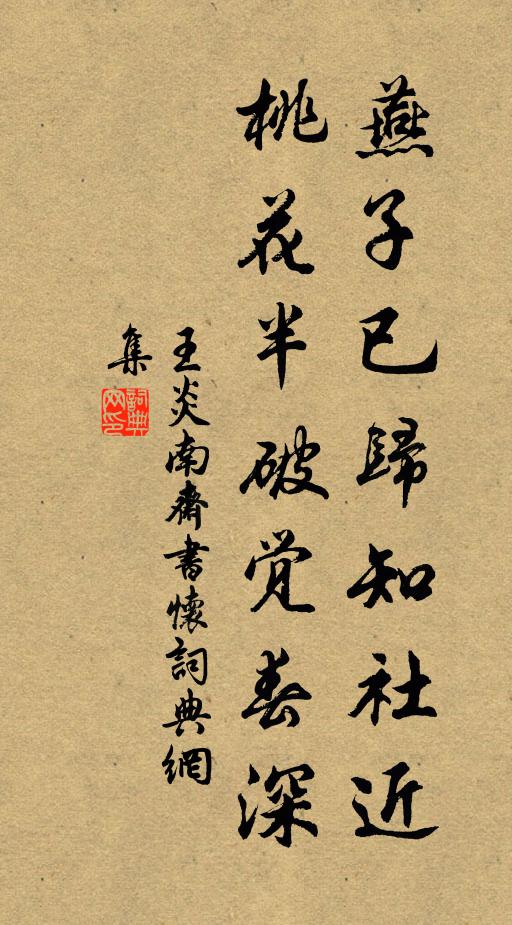 燕子已歸知社近
桃花半破覚春深
王炎南齋書懷詞典網
集
詞典網印